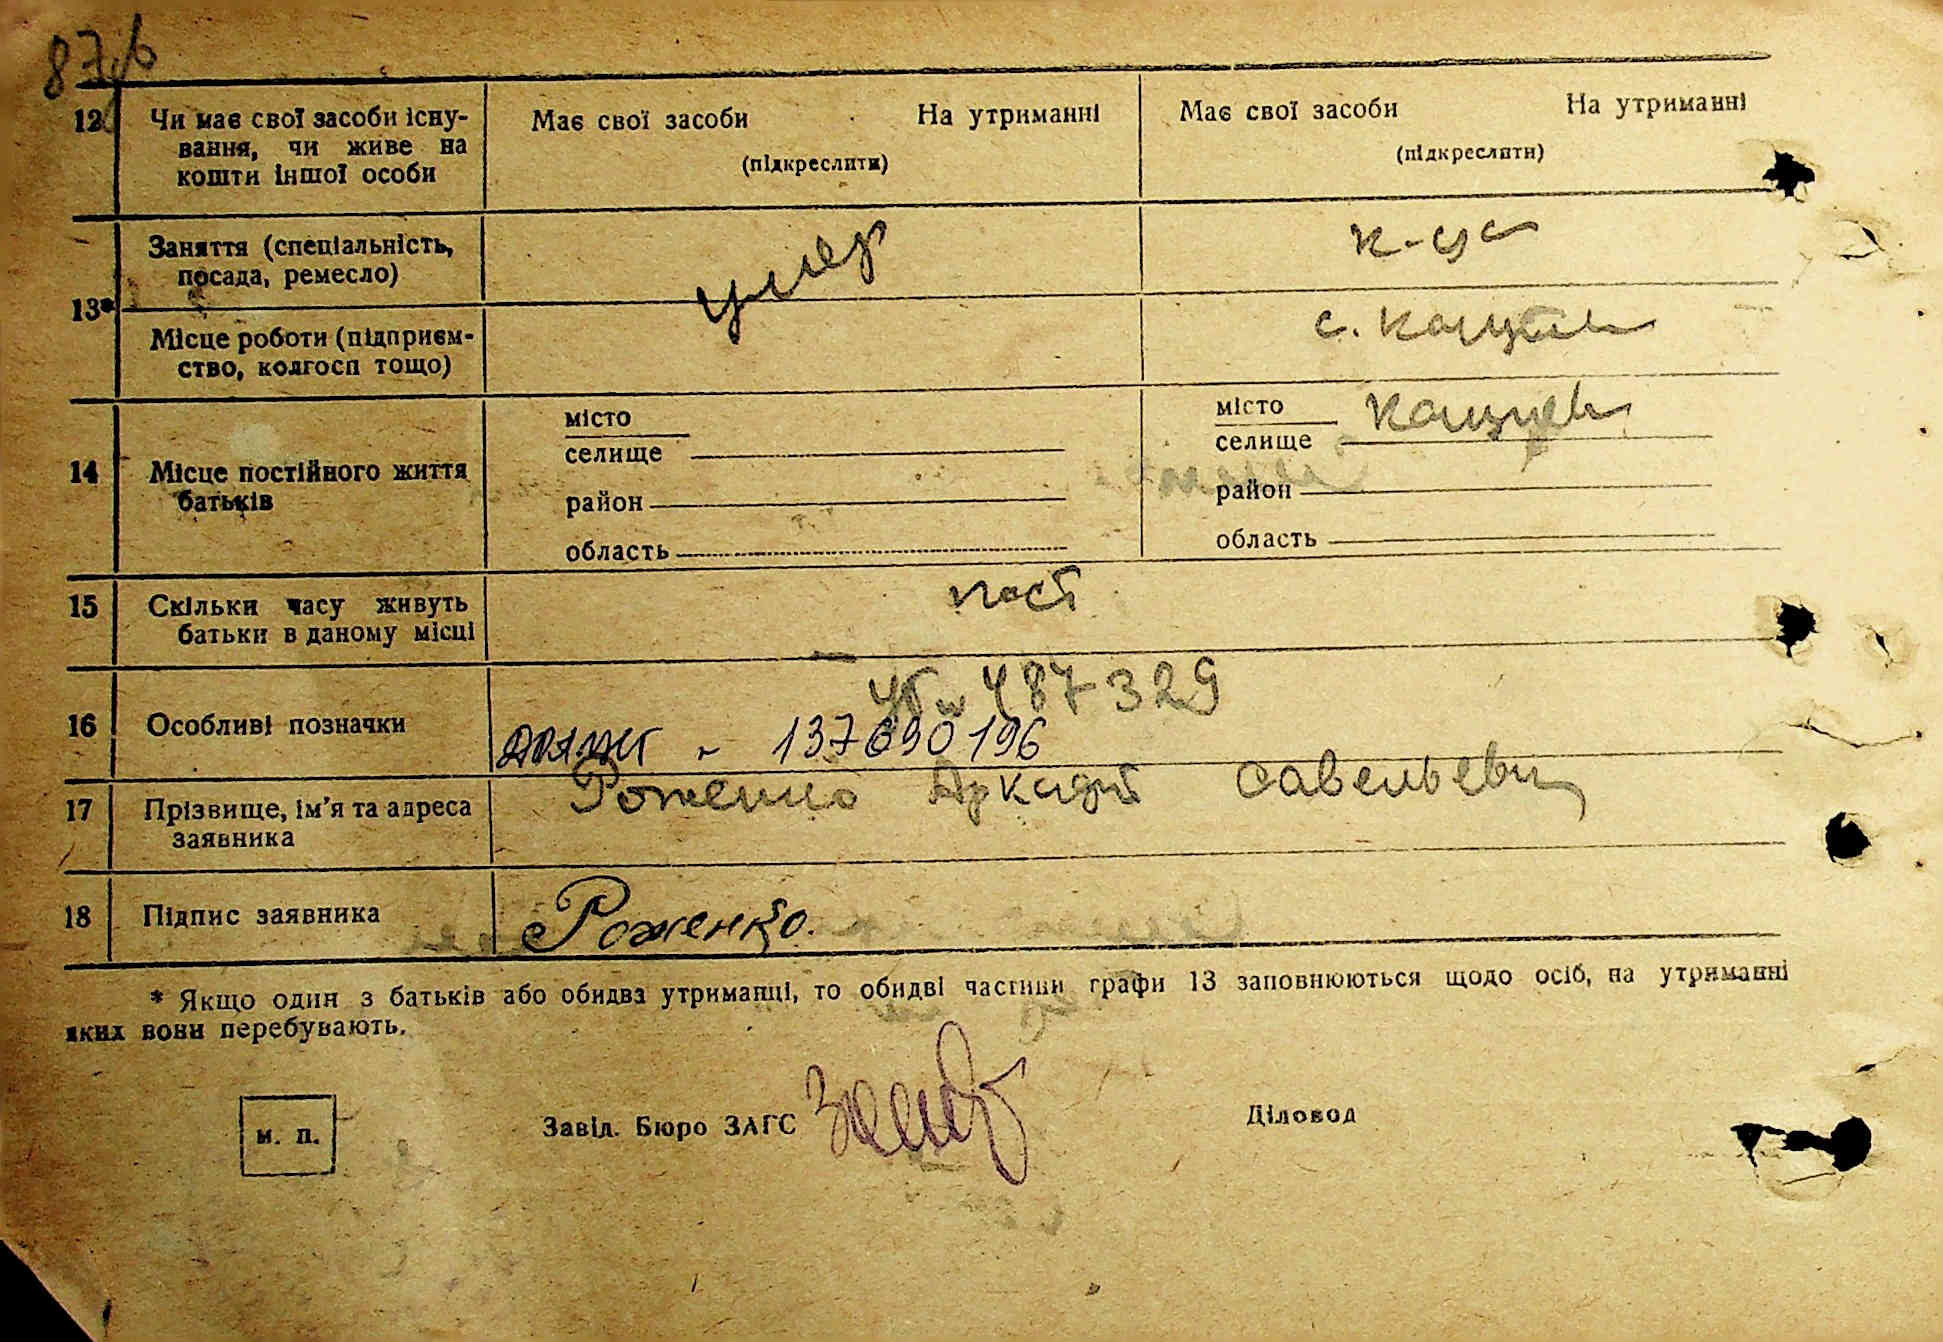 12 Чи має свої засоби існу-
вання, чи живе на
кошти іншої особи
Має свої засоби На утриманні
(підкреслити)
Має свої засоби На утриманні
(підкреслити)
13*
Заняття (спеціальність,
посада, ремесло)
умер
Місце роботи (підприєм-
ство, колгосп тощо)
с.
14 Місце постійного життя
батьків
місто
селище
район
область
місто
селище
район
область
15 Скільки часу живуть
батьки в даному місці
пост
16 Особливі позначки
487329
137690196
17 Прізвище, ім'я та адреса
заявника
Роженко Аркадий Савельевич
18 Підпис заявника
Роженко.
* Якщо один з батьків або обидва утриманці, то обидві частини графи 13 заповнюються щодо осіб, на утриманні
яких вони перебувають.
м. п.
Завід. Бюро ЗАГС
Діловод